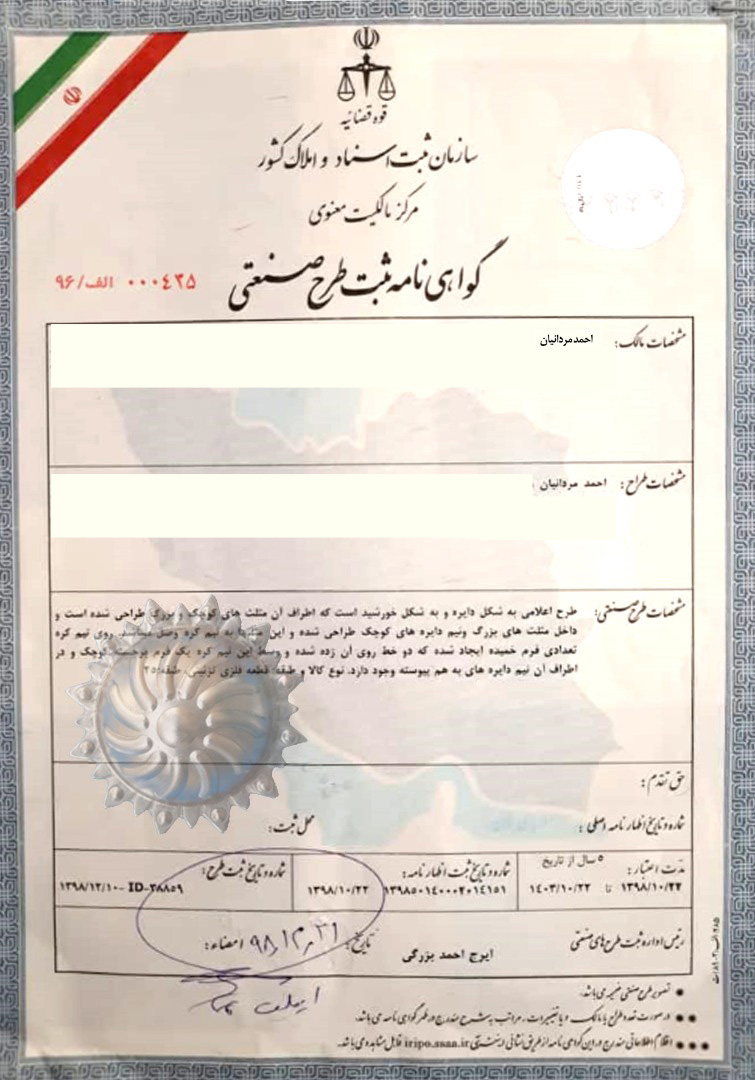 قوه قضائیه
سازمان ثبت اسناد و املاک کشور
مرکز مالکیت معنوی
گواهی نامه ثبت طرح صنعتی
الف/۹۶ ۰۰۰۴۳۵
مشخصات مالک: احمد مردانیان
مشخصات طراح: احمد مردانیان
مشخصات طرح صنعتی: طرح اعلامی به شکل دایره و به شکل خورشید است که اطراف آن مثلث های کوچک و بزرگ طراحی شده است و
داخل مثلث های بزرگ ونیم دایره های کوچک طراحی شده و این مثلثها به نیم کره وصل میباشد. روی نیم کره
تعدادی فرم خمیده ایجاد شده که دو خط روی آن زده شده و وسط این نیم کره یک فرم برجسته کوچک و در
اطراف آن نیم دایره های به هم پیوسته وجود دارد. نوع کالا و طبقه: قطعه فلزی تزئینی، طبقه:۲۵
حق تقدم:
شماره و تاریخ اظهارنامه اصلی: محل ثبت:
مدت اعتبار: ۵ سال از تاریخ
۱۳۹۸/۱۰/۲۲ تا ۱۴۰۳/۱۰/۲۲
شماره و تاریخ ثبت اظهارنامه:
۱۳۹۸۵۰۱۴۰۰۰۲۰۱۴۱۵۱ ۱۳۹۸/۱۰/۲۲
شماره و تاریخ ثبت طرح:
ID-۳۸۸۵۹ -۱۳۹۸/۱۲/۱۰
رئیس اداره ثبت طرح های صنعتی ایرج احمد بزرگی تاریخ: امضاء:
تصویر طرح صنعتی ضمیمه می باشد.
در صورت تعدد طراح یا مالک و یا تغییرات، مراتب به شرح مندرج در ظهر گواهی نامه می باشد.
اقلام اطلاعاتی مندرج در این گواهی نامه از طریق نشانی اینترنتی iripo.ssaa.ir قابل مشاهده می باشد.